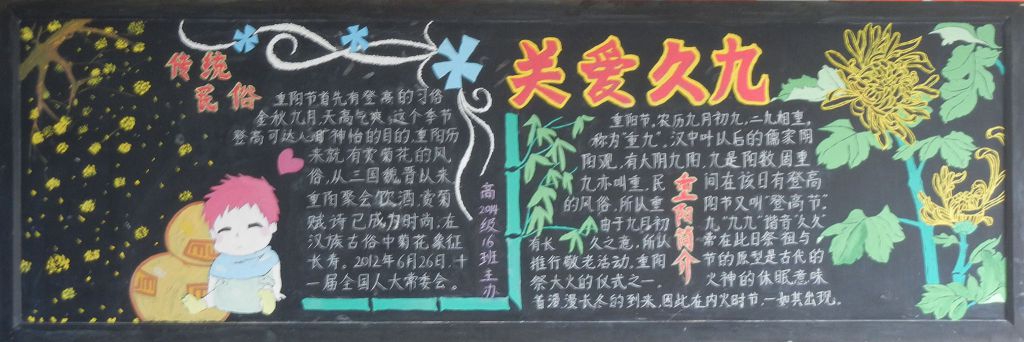 传统
民俗
重阳节首先有登高的习俗
金秋九月,天高气爽,这个季节
登高可达人旷神怡的目的.重阳历
来就有赏菊花的风
俗,从三国魏晋以来
重阳聚会饮酒.赏菊
赋诗已成为时尚.在
汉族古俗中菊花象征
长寿。2012年6月26日,十
一届全国人大常委会。
商2014级16班主办
关爱久九
重阳简介
重阳节,农历九月初九,二九相重,
称为"重九",汉中叶以后的儒家阴
阳观,有六阴九阳.九是阳数,固重
九亦叫重.民间在该日有登高
的风俗,所以重阳节又叫"登高节".
由于九月初九"九九"谐音"久久"
有长久之意,所以常在此日祭祖与
推行敬老活动.重阳节的原型是古代的
祭大火的仪式之一.火神的休眠意味
着漫漫长冬的到来,因此在内火时节,一如其出现。